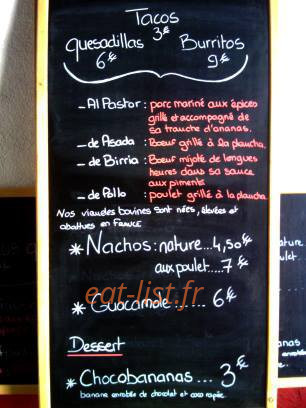 Tacos
3€
Quesadillas Burritos
6€ 9€
_ Al Pastor : porc mariné aux épices
grillé et accompagné de
sa tranche d'ananas.
_ de Asada : Boeuf grillé à la plancha
_ de Birria : Boeuf mijoté de longues
heures dans sa sauce
aux piments
_ de Pollo : poulet grillé à la plancha
Nos viandes bovines sont nées, élevées et
abattues en France
* Nachos : nature...4,50€
aux poulet....7€
eat-list.fr
* Guacamole ...... 6€
Dessert
* Chocobananas ... 3€
banane enrobée de chocolat et coco rapée